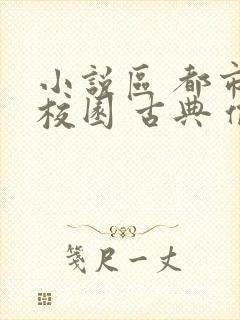 小說區 都市
校園 古典
箋尺一丈